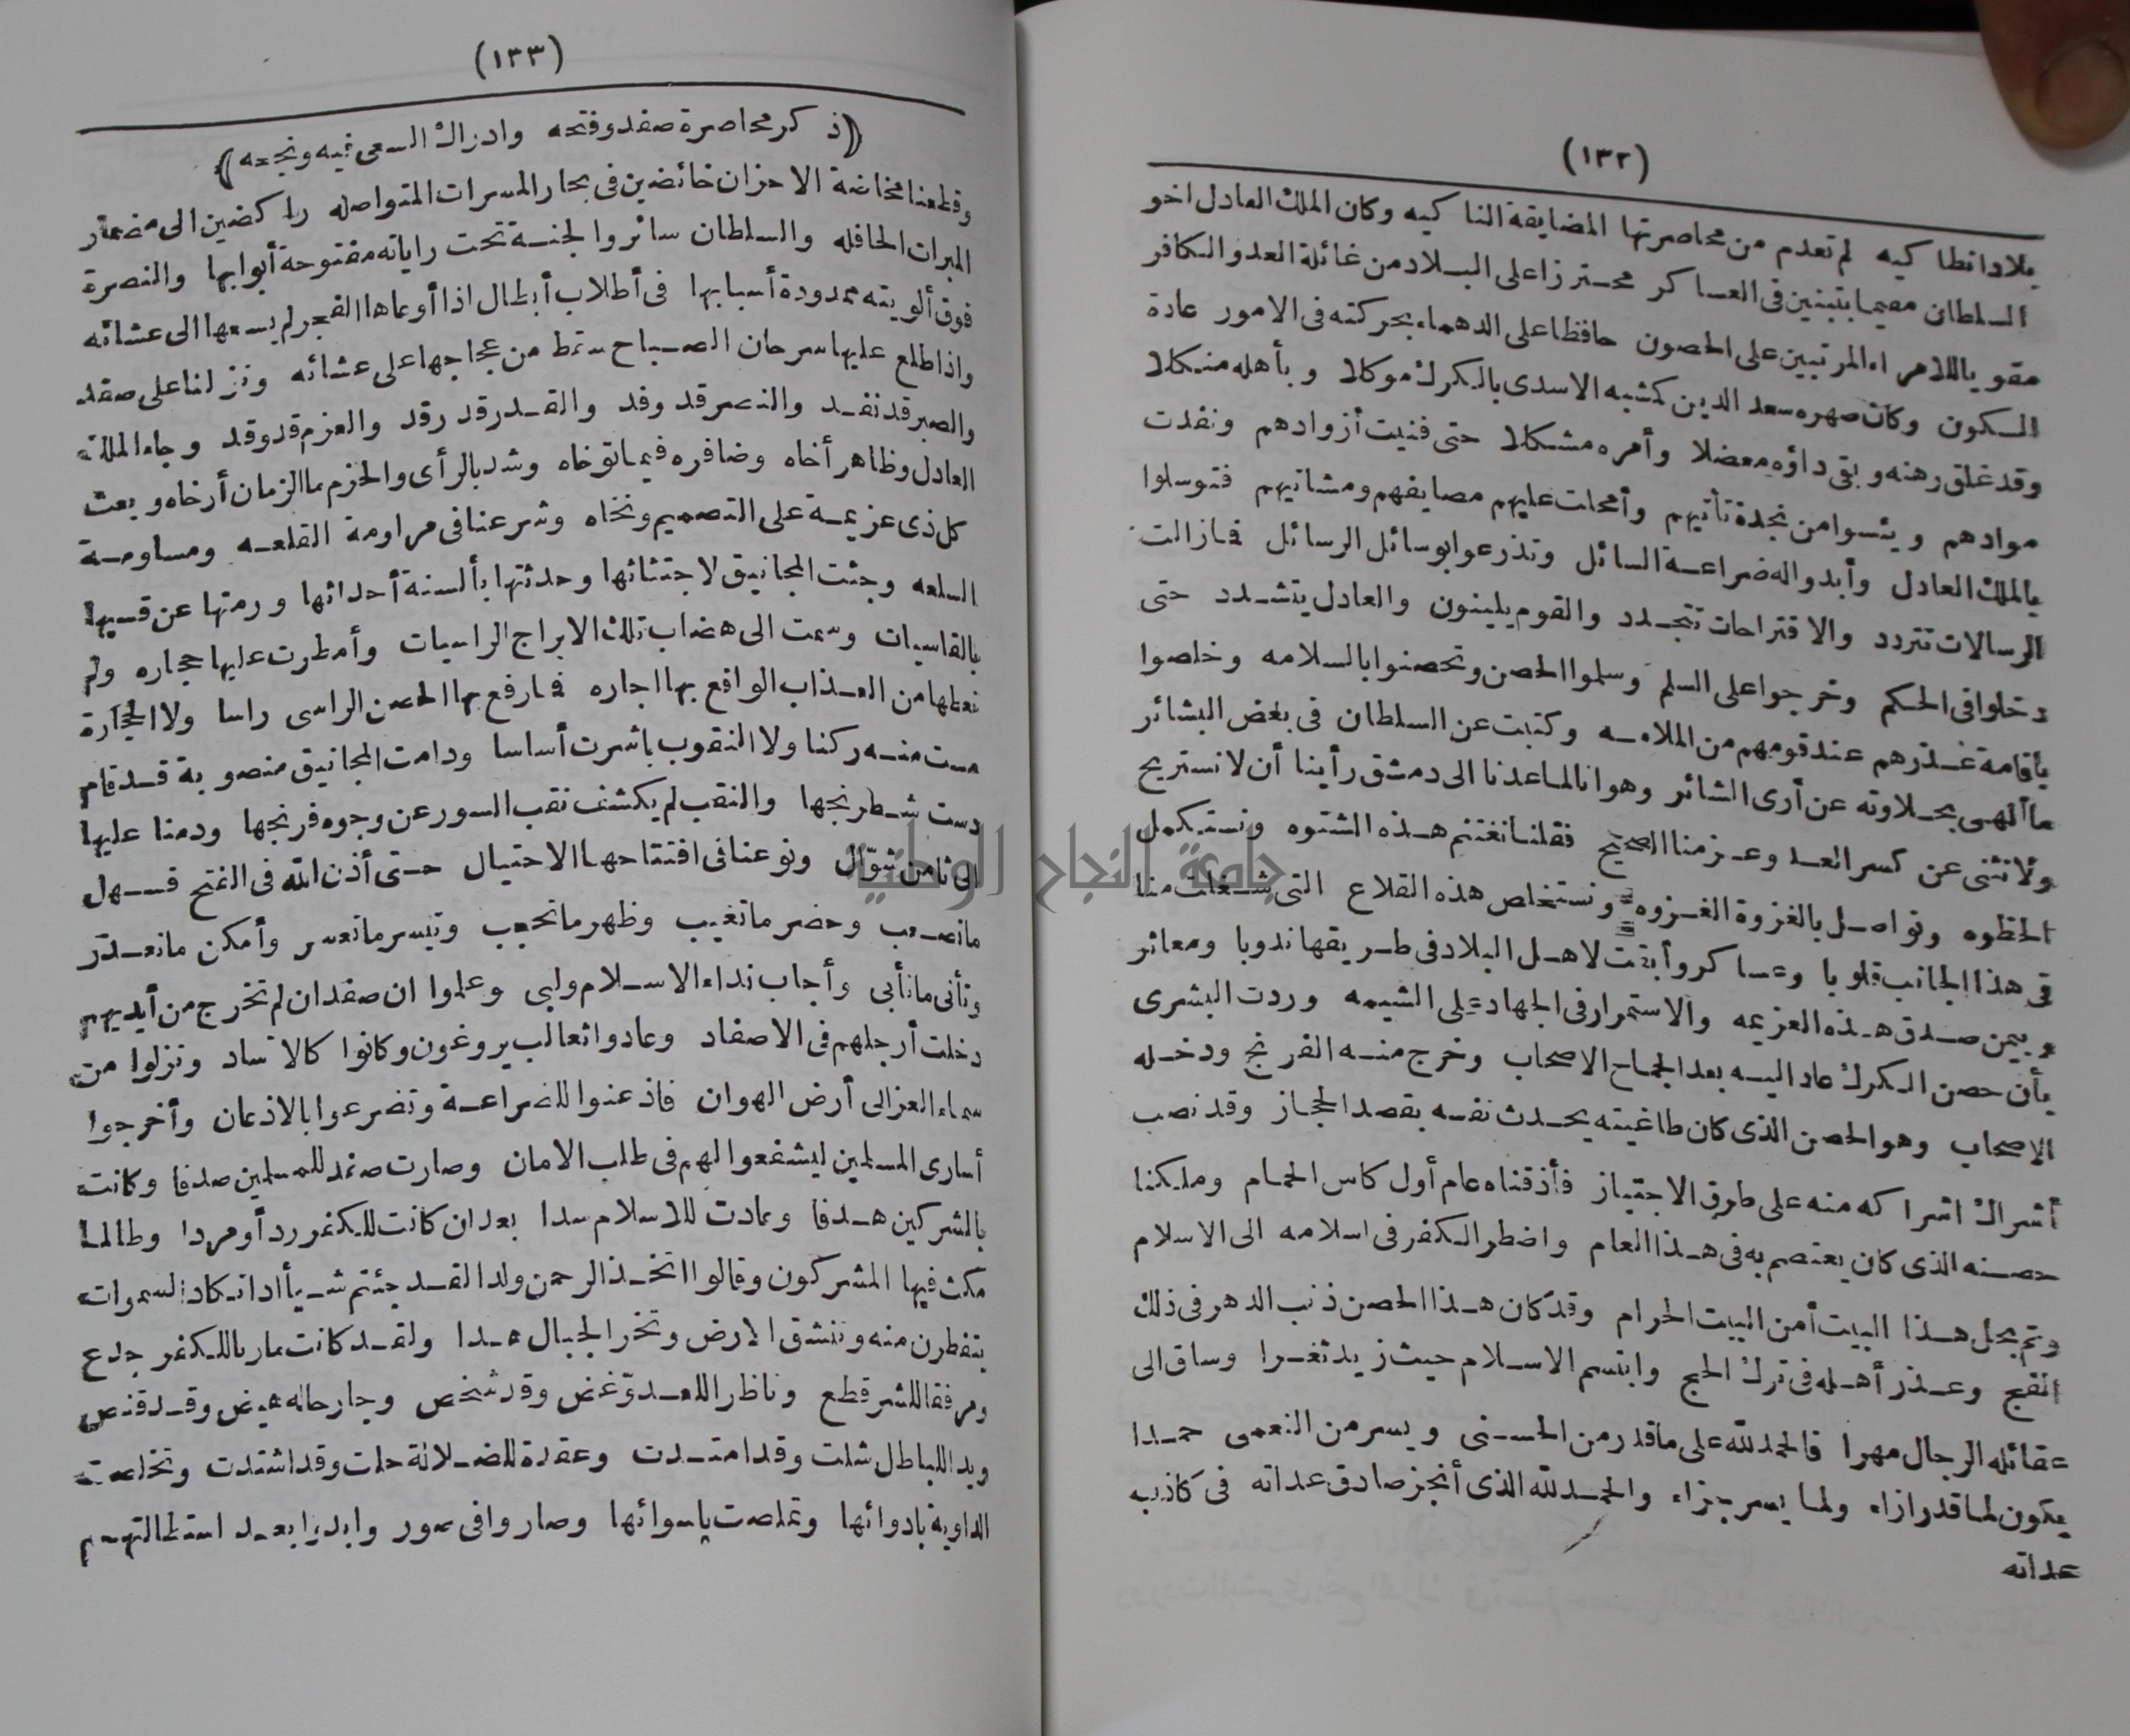 (١٣٢)
بلاد انطاكيه لم تعدم من محاصرتها المضايقة الناكيه وكان الملك العادل اخو
السلطان مقيما بتبنين فى العساكر محترزا على البلاد من غائلة العدو الكافر
مقويا للامراء المرتبين على الحصون حافظا على الدهماء بحركته فى الامور عادة
السكون وكان صهره سعد الدين كمشبه الاسدى بالكرك موكلا وبأهله منكلا
وقد غلق رهنه وبقى داؤه معضلا وأمره مشكلا حتى فنيت أزوادهم ونفدت
موادهم ويئسوا من نجدة تأتيهم وأمحلت عليهم مصايفهم ومشاتيهم فتوسلوا
بالملك العادل وأبدوا له ضراعة السائل وتذرعوا بوسائل الرسائل فما زالت
الرسالات تتردد والاقتراحات تتجدد والقوم يلينون والعادل يتشدد حتى
دخلوا فى الحكم وخرجوا على السلم وسلموا الحصن وتحصنوا بالسلامه وخلصوا
باقامة عذرهم عند قومهم من الملامه وكتبت عن السلطان فى بعض البشائر
ما ألهى بحلاوته عن أرى الشائر وهو انا لما عدنا الى دمشق رأينا أن لا نستريح
ولا ننثنى عن كسر العدو عزمنا الصحيح فقلنا نغتنم هذه الشتوه ونستكمل
الحظوه ونواصل بالغزوة الغزوه ونستخلص هذه القلاع التى شغلت منا
فى هذا الجانب قلوبا وعساكر وأبقت لاهل البلاد فى طريقها ندوبا ومعاثر
وبيمن صدق هذه العزيمه والاستمرار فى الجهاد على الشيمه وردت البشرى
بأن حصن الكرك عاد اليه بعد الجماح الاصحاب وخرج منه الفرنج ودخله
الاصحاب وهو الحصن الذى كان طاغيته يحدث نفسه بقصد الحجاز وقد نصب
أشراك اشراكه منه على طرق الاجتياز فأذقناه عام أول كاس الحمام وملكنا
حصنه الذى كان يعتصم به فى هذا العام واضطر الكفر فى اسلامه الى الاسلام
وتم بحل هذا البيت أمن البيت الحرام وقد كان هذا الحصن ذنب الدهر فى ذلك
الفج وعذر أهله فى ترك الحج وابتسم الاسلام حيث زيد ثغرا وساق الى
عقائله الرجال مهرا فالحمد لله على ما قدر من الحسنى ويسر من النعمى حمدا
يكون لما قدر ازاء ولما يسر جزاء والحمد لله الذى أنجز صادق عداته فى كاذب
عداته
(١٣٣)
﴿ذكر محاصرة صفد وفتحه وادراك السعى فيه ونجحه﴾
وقطعنا مخاضة الاحزان خائضين فى بحار المسرات المتواصله راكضين الى مضمار
المبرات الحافله والسلطان سائر والجنة تحت راياته مفتوحة أبوابها والنصرة
فوق ألويته ممدودة أسبابها فى أطلاب أبطال اذا أوعاها الفجر لم يسعها الى عشائه
واذا طلع عليها سرحان الصباح سقط من عجاجها على عشائه ونزلنا على صفد
والصبر قد نفد والنصر قد وفد والقدر قد رقد والعزم قد وقد وجاء الملك
العادل وظاهر أخاه وضافره فيما توخاه وشد بالرأى والحزم ما الزمان أرخاه وبعث
كل ذى عزيمة على التصميم ونخاه وشرعنا فى مراومة القلعه ومساومة
السلعه وجئت المجانيق لاجتثاثها وحدثتها بألسنة أحداثها ورمتها عن قسيها
بالقاسيات وسمت الى هضاب تلك الابراج الراسيات وأمطرت عليها حجاره ولم
نعطها من العذاب الواقع بها اجاره فما رفع بها الحصن الراسى راسا ولا الحجارة
مست منه ركنا ولا النقوب باشرت أساسا ودامت المجانيق منصوبة قد قام
دست شطرنجها والنقب لم يكشف نقب السور عن وجوه فرنجها ودمنا عليها
الى ثامن شوّال ونوعنا فى افتتاحها الاحتيال حتى أذن الله فى الفتح فسهل
ما تصعب وحضر ما تغيب وظهر ما تحجب وتيسر ما تعسر وأمكن ما تعذر
وتأتى ما تأبى وأجاب نداء الاسلام ولبى وعلموا ان صفد ان لم تخرج من أيديهم
دخلت أرجلهم فى الاصفاد وعادوا ثعالب يروغون وكانوا كالآساد ونزلوا من
سماء العز الى أرض الهوان فاذعنوا للضراعة وتضرعوا بالاذعان وأخرجوا
أسارى المسلمين ليشفعوا لهم فى طلب الامان وصارت صفد للمسلمين صدفا وكانت
بالمشركين هدفا وعادت للاسلام سدا بعد ان كانت للكفر ردأ ومردا وطالما
مكث فيها المشركون وقالوا اتخذ الرحمن ولدا لقد جئتم شيأ ادا تكاد السموات
يتفطرن منه وتنشق الارض وتخر الجبال هدا ولقد كانت مارنا للكفر جدع
ومرفقا للشر قطع وناظرا للعدوّ غض وقد شخص وجارحا له هيض وقد قنص
ويدا للباطل شلت وقد امتدت وعقدة للضلالة حلت وقد اشتدت وتخلصت
الداوية بادوائها وتملصت باسوائها وصاروا فى صور وابدوا بعد استطالتهم